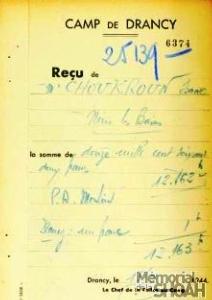 CAMP DE DRANCY
25139
6374
Reçu de
Mr CHOUKROUN
la somme de douze mille cent soixante
deux francs
12.162
P.D.
Drancy: un franc 1
12.163
Drancy, le 1944
Le Chef de la Police du Camp
Memorial
SHOAH